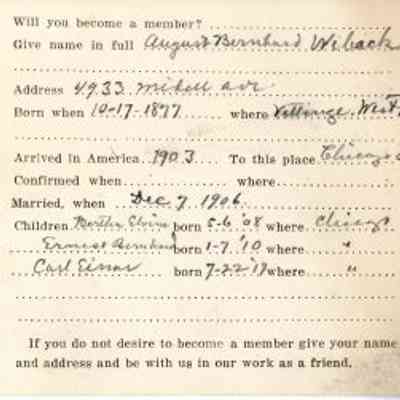 Will you become a member?
Give name in full August Bernhard Wiback
Address 4933 Ave
Born when 10-17-1877 where West.
Arrived in America 1903 To this place Chicago
Confirmed when where
Married, when Dec 7 1906
Children Bertha born 5-6 '08 where Chicago
Ernest Bernhard born 1-7 '10 where "
Carl Einar born 7-22 '17 where "
If you do not desire to become a member give your name
and address and be with us in our work as a friend.